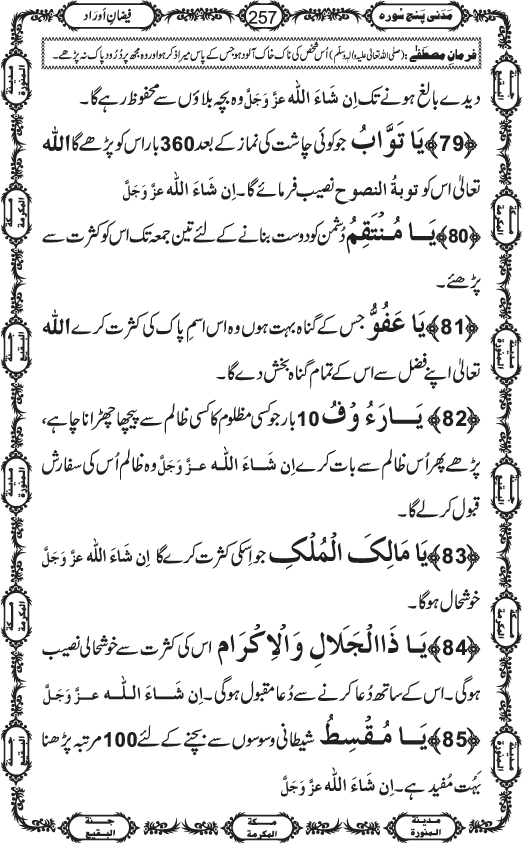 مَدَنی پنج سورہ 257 فیضانِ اَوراد
فرمانِ مصطفٰے: (صلی اللہ تعالٰی علیہ والہٖ وسلّم) اُس شخص کی ناک خاک آلود ہو جس کے پاس میرا ذکر ہو اور وہ مجھ پر دُرُود پاک نہ پڑھے۔
دیدے بالغ ہونے تک اِن شَاءَ اللّٰه عزَّ وَجَلَّ وہ بچہ بلاؤں سے محفوظ رہے گا۔
﴿79﴾ یَا تَوَّابُ جو کوئی چاشت کی نماز کے بعد 360 بار اس کو پڑھے گا اللّٰه
تعالٰی اس کو توبۃُ النصوح نصیب فرمائے گا۔ اِن شَاءَ اللّٰه عزَّ وَجَلَّ
﴿80﴾ یَا مُنْتَقِمُ دُشمن کو دوست بنانے کے لئے تین جمعہ تک اس کو کثرت سے
پڑھئے۔
﴿81﴾ یَا عَفُوُّ جس کے گناہ بہت ہوں وہ اس اسمِ پاک کی کثرت کرے اللّٰه
تعالٰی اپنے فضل سے اس کے تمام گناہ بخش دے گا۔
﴿82﴾ یَارَءُ وْفُ 10 بار جو کسی مظلوم کا کسی ظالم سے پیچھا چھڑانا چاہے،
پڑھے پھر اُس ظالم سے بات کرے اِن شَاءَ اللّٰه عزَّ وَجَلَّ وہ ظالم اُس کی سفارش
قبول کر لے گا۔
﴿83﴾ یَا مَالِکَ الْمُلْکِ جو اسکی کثرت کرے گا اِن شَاءَ اللّٰه عزَّ وَجَلَّ
خوشحال ہوگا۔
﴿84﴾ یَا ذَاالْجَلَالِ وَالْاِکْرَام اس کی کثرت سے خوشحالی نصیب
ہوگی۔ اس کے ساتھ دُعا کرنے سے دُعا مقبول ہوگی۔ اِن شَاءَ اللّٰه عزَّ وَجَلَّ
﴿85﴾ یَا مُقْسِطُ شیطانی وسوسوں سے بچنے کے لئے 100 مرتبہ پڑھنا
بَہُت مُفید ہے۔ اِن شَاءَ اللّٰه عزَّ وَجَلَّ
مدينة المنورة مكة المكرمة جنة البقيع